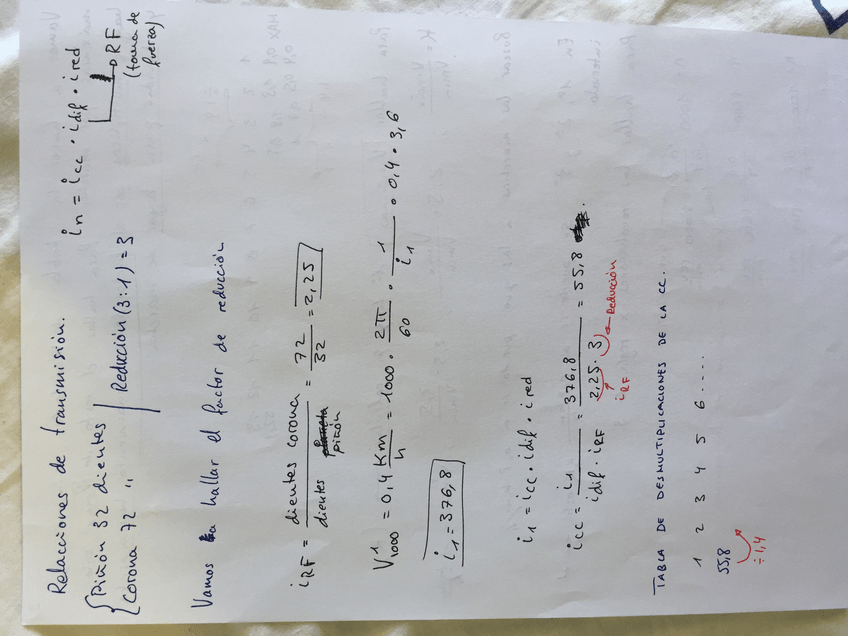 Relacciones de transmisión.
in = icc · idif · ired
{ Piñón 32 dientes
Corona 72 "
Reducción (3:1) = 3
RF
(toma de
fuerza)
Vamos a hallar el factor de reducción
iRF = dientes corona / dientes piñón = 72/32 = 2,25
V¹1000 = 0,4 Km/h = 1000 · 2π/60 · 1/i1 · 0,4 · 3,6
i1 = 376,8
i1 = icc · idif · ired
icc = i1 / idif · iRF = 376,8 / 2,25 · 3 = 55,8
iRF
Reducción
TABLA DE DESMULTIPLICACIONES DE LA CC.
1 2 3 4 5 6 .....
55,8
÷1,4